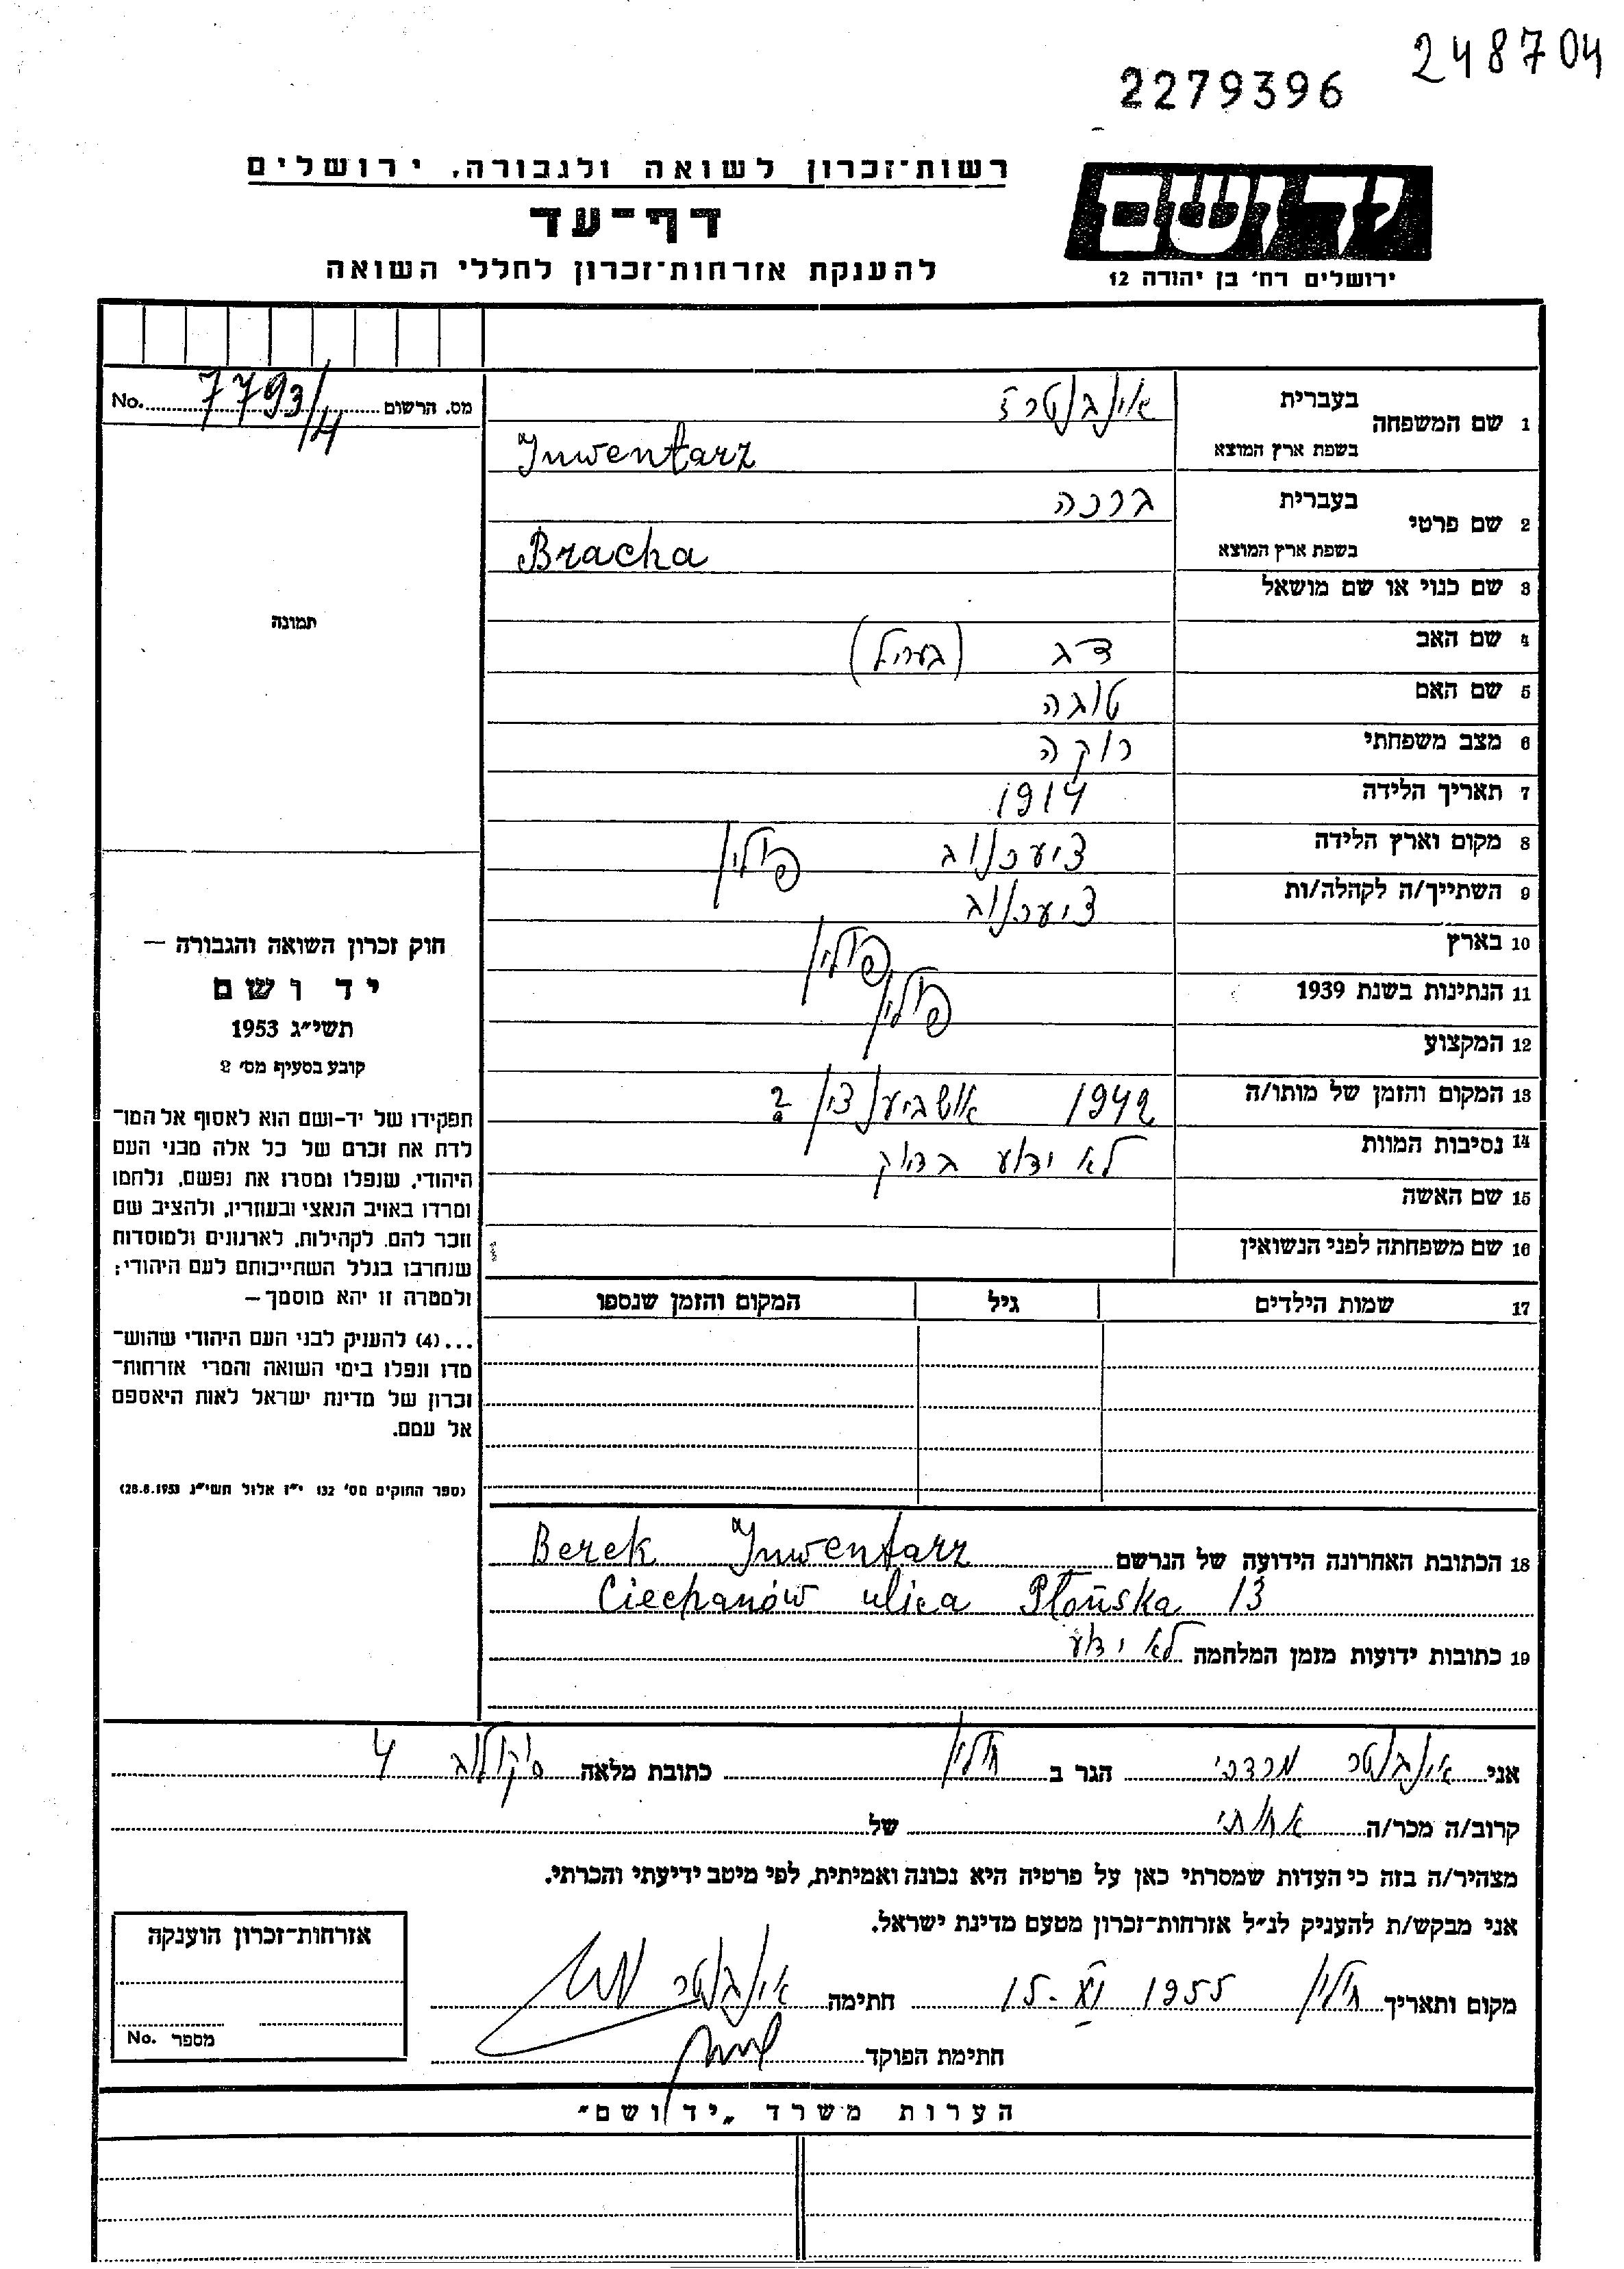 248704
2279396
יד ושם
ירושלים רח' בן יהודה 12
רשות-זכרון לשואה ולגבורה, ירושלים
דף-עד
להענקת אזרחות-זכרון לחללי השואה
מס. הרשום 7793/4 No.
1 שם המשפחה
בעברית אינבנטרז
בשפת ארץ המוצא Inwentarz
2 שם פרטי
בעברית ברכה
בשפת ארץ המוצא Bracha
3 שם כנוי או שם מושאל
4 שם האב דב (בעריל)
5 שם האם טובה
6 מצב משפחתי רוקה
7 תאריך הלידה 1914
8 מקום וארץ הלידה ציעכנוב פולין
9 השתייך/ה לקהלה/ות ציעכנוב
10 בארץ פולין
11 הנתינות בשנת 1939 פולין
12 המקצוע
13 המקום והזמן של מותו/ה 1942 אושביענצין ?
14 נסיבות המוות לא ידוע בדוק
15 שם האשה
16 שם משפחתה לפני הנשואין
17 שמות הילדים גיל המקום והזמן שנספו
תמונה
חוק זכרון השואה והגבורה —
יד ושם
תשי"ג 1953
קובע בסעיף מס' 2
תפקידו של יד-ושם הוא לאסוף אל המו-
לדת את זכרם של כל אלה מבני העם
היהודי, שנפלו ומסרו את נפשם, נלחמו
ומרדו באויב הנאצי ובעוזריו, ולהציב שם
וזכר להם, לקהילות, לארגונים ולמוסדות
שנחרבו בגלל השתייכותם לעם היהודי;
ולמטרה זו יהא מוסמך —
...(4) להעניק לבני העם היהודי שהוש-
מדו ונפלו בימי השואה והמרי אזרחות-
זכרון של מדינת ישראל לאות היאספם
אל עמם.
(ספר החוקים מס' 132 י"ז אלול תשי"ג 28.8.1953)
18 הכתובת האחרונה הידועה של הנרשם Berek Inwentarz
Ciechanów ulica Płońska 13
19 כתובות ידועות מזמן המלחמה לא ידוע
אני אינבנטר מרדכי הגר ב חולון כתובת מלאה סוקולוב 4
קרוב/ה מכר/ה אחותי של
מצהיר/ה בזה כי העדות שמסרתי כאן על פרטיה היא נכונה ואמיתית, לפי מיטב ידיעתי והכרתי.
אני מבקש/ת להעניק לנ"ל אזרחות-זכרון מטעם מדינת ישראל.
מקום ותאריך חולון 1955 15- חתימה אינבנטר
חתימת הפוקד
אזרחות-זכרון הוענקה
מספר No.
הערות משרד "יד ושם"